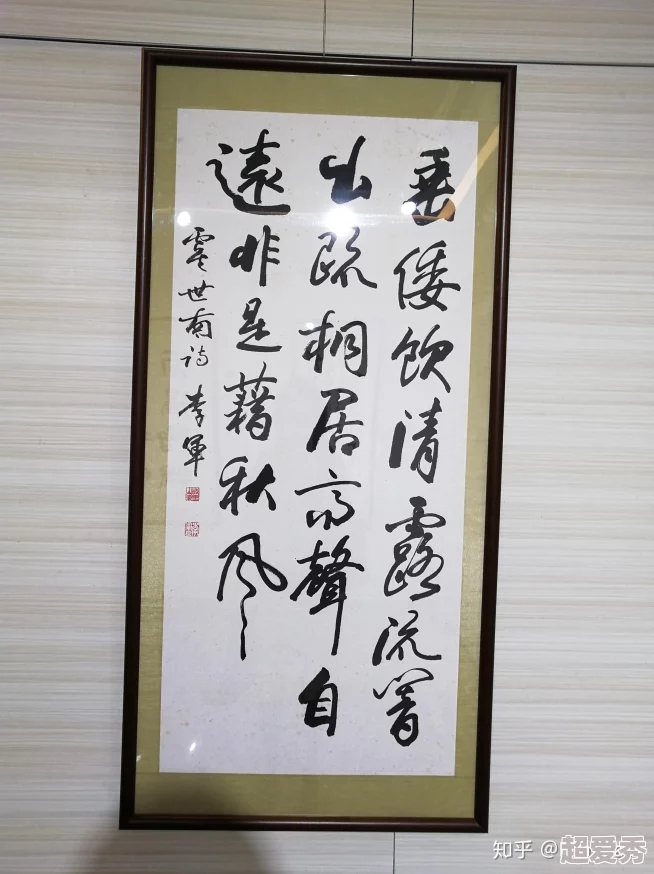 垂倭飲清露流響
出疏桐居高聲自
遠非是藉秋風
虞世南詩 李軍
知乎 @
超爱秀